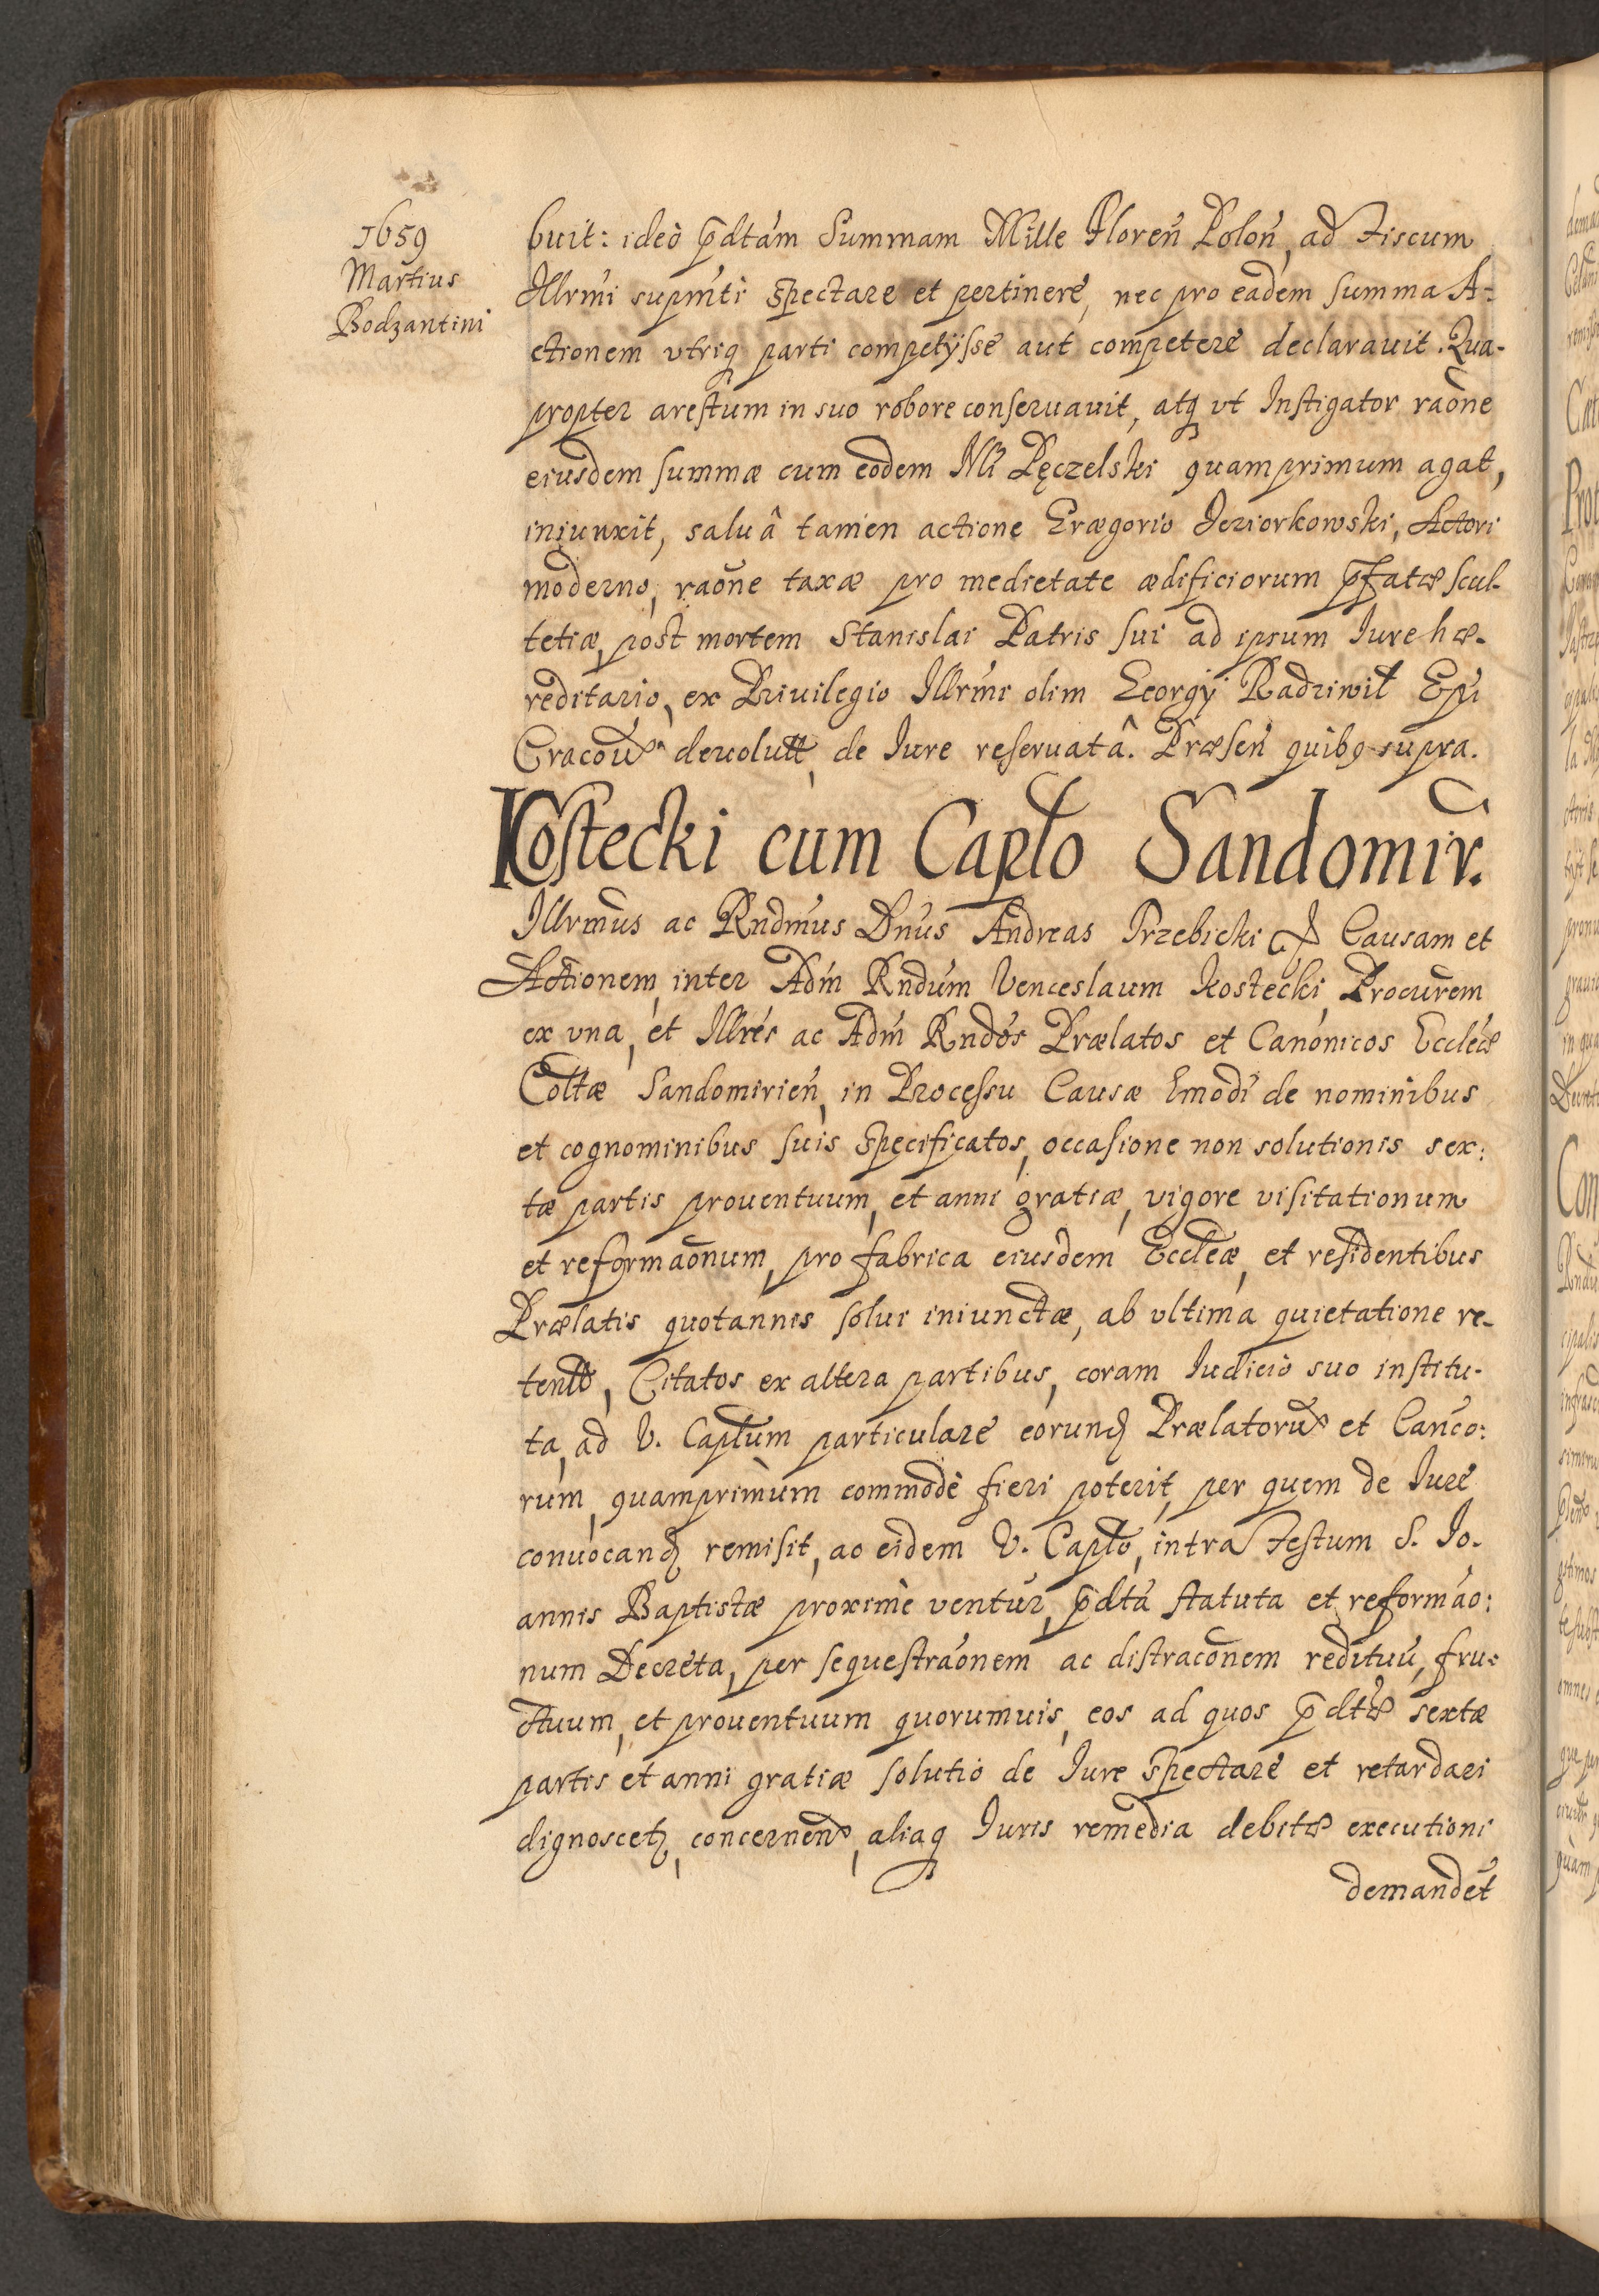 1659
Martius
Bodzantini
buit: ideò p̄dtam Summam Mille Floren̄ Polon̄, ad Fiscum
Illrmi supmti spectare et pertinere, nec pro eadem summa A-
ctionem vtriq parti competÿsse aut competere declarauit. Qua-
propter arestum in suo robore conseruauit, atq vt Instigator raōne
eiusdem summæ cum eodem Nli Pęczelski quamprimum agat,
iniunxit, saluâ tamen actione Grægorio Jeziorkowski, Actori
moderno, raōne taxæ pro medietate ædificiorum p̄fatæ scul-
tetiæ, post mortem Stanislai Patris sui ad ipsum Iure hæ-
reditario, ex Priuilegio Illrmi olim Georgÿ Radziwił Epi
Cracou deuolut, de Iure reseruatâ. Præsen̄ quibg supra.
Kostecki cum Caplo Sandomir.
Illrmus ac Rndmus Dnus Andreas Trzebicki & Causam et
Actionem, inter Adm Rndum Venceslaum Kostecki, Procurem
ex vna, et Illres ac Adm Rndos Prælatos et Canonicos Eccleæ
Coltæ Sandomirien̄, in Processu Causæ hmodi de nominibus
et cognominibus suis specificatos, occasione non solutionis sex:
tæ partis prouentuum, et anni gratiæ, vigore visitationum
et reformaōnum, pro fabrica eiusdem Eccleæ, et residentibus
Prælatis quotannis solui iniunctæ, ab vltima quietatione re-
tentæ, Citatos ex altera partibus, coram Iudicio suo institu-
ta, ad V. Caplum particulare eorund Prælatorū et Canco:
rum, quamprimùm commodè fieri poterit, per quem de Iure
conuocand remisit, ac eidem V. Caplo, intra Festum S. Io-
annis Baptistæ proximè ventur, p̄dta statuta et reformao:
num Decreta, per sequestraōnem ac distracōnem redituū, fru-
ctuum, et prouentuum quorumuis, eos ad quos p̄dtæ sextæ
partis et anni gratiæ solutio de Iure spectare et retardari
dignoscet, concernen̄, aliaq Iuris remedia debitæ executioni
demandet